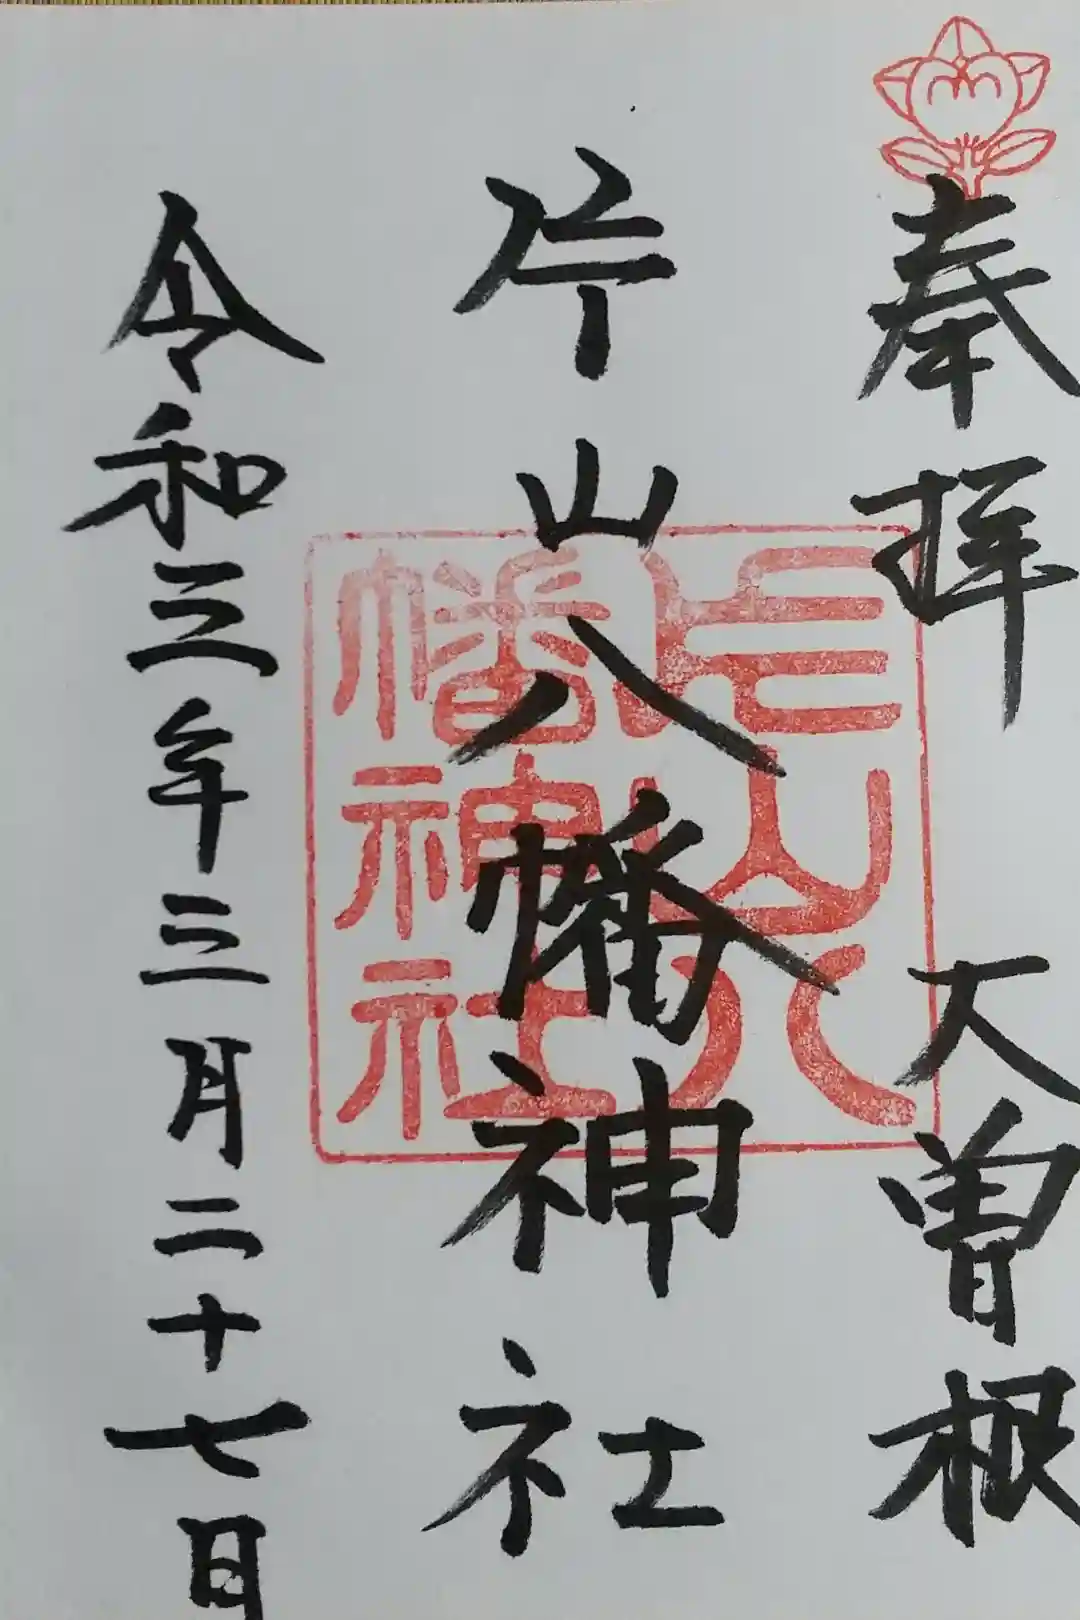 奉拝 大曽根
片山八幡神社
令和三年三月二十七日
片山八
幡神社